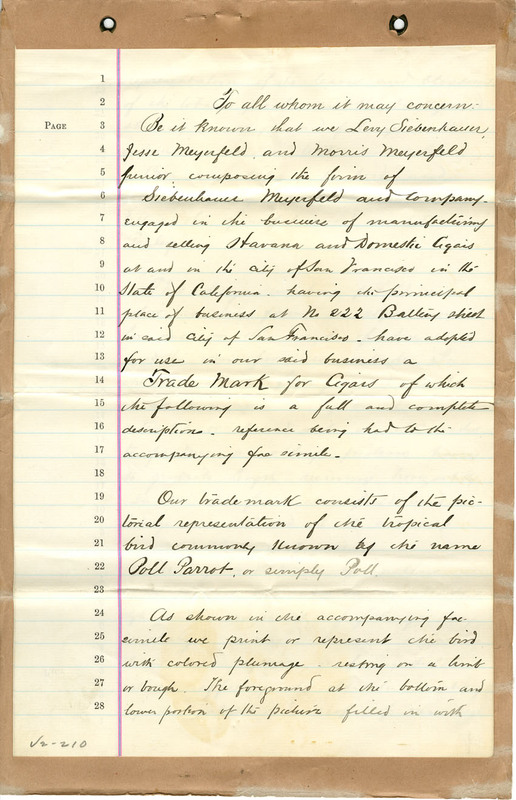 1
2 To all whom it may concern.
PAGE 3 Be it known that we Levy Siebenhauer,
4 Jesse Meyerfeld and Morris Meyerfeld
5 junior composing the firm of
6 Siebenhauer Meyerfeld and Company.
7 engaged in the business of manufacturing
8 and selling Havana and Domestic Cigars
9 at and in the city of San Francisco in the
10 State of California. having the principal
11 place of business at No 222 Battery street
12 in said city of San Francisco. have adopted
13 for use in our said business a
14 Trade Mark for Cigars of which
15 the following is a full and complete
16 description. reference being had to the
17 accompanying fac simile.
18
19 Our trade mark consists of the pic-
20 torial representation of the tropical
21 bird commonly known by the name
22 Poll Parrot, or simply Poll
23
24 As shown in the accompanying fac-
25 simile we print or represent the bird
26 with colored plumage. resting on a limb
27 or bough. The foreground at the bottom and
28 lower portion of the picture filled in with
V2-210